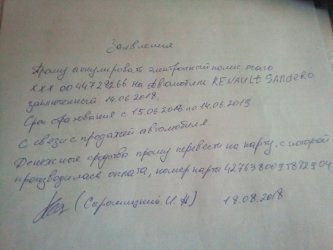 Заявления
Прошу аннулировать электронный полис осаго
XXX 0044729266 на автомобили RENAULT SANDERO
заключенный 14.06.2018.
Срок страхования с 15.06.2018 по 14.06.2019
С связи с продажей автомобиля.
Денежные средства прошу перевести на карту, с которой
производилась оплата, номер карты
(Сарамицкий И.А) 18.08.2018